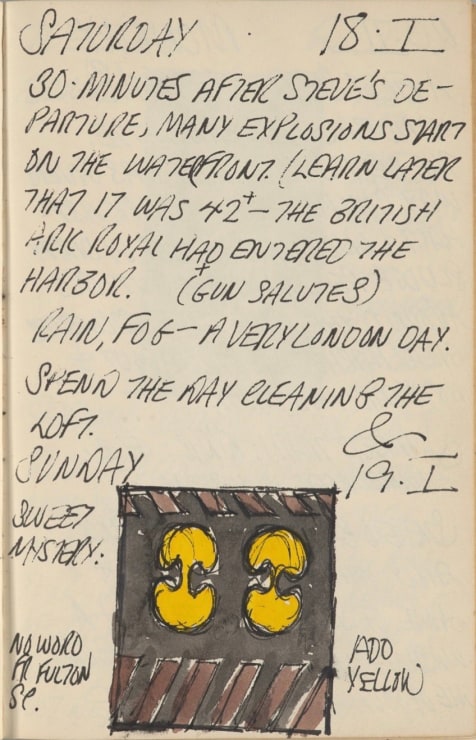 SATURDAY 18·I
30·MINUTES AFTER STEVE'S DE-
PARTURE, MANY EXPLOSIONS START
ON THE WATERFRONT. (LEARN LATER
THAT IT WAS 42+ – THE BRITISH
ARK ROYAL HAD ENTERED THE
HARBOR. (GUN SALUTES)
RAIN, FOG – A VERY LONDON DAY.
SPEND THE DAY CLEANING THE
LOFT.
&
SUNDAY 19·I
SWEET
MYSTERY.
NO WORD
FR FULTON
ST.
ADD
YELLOW